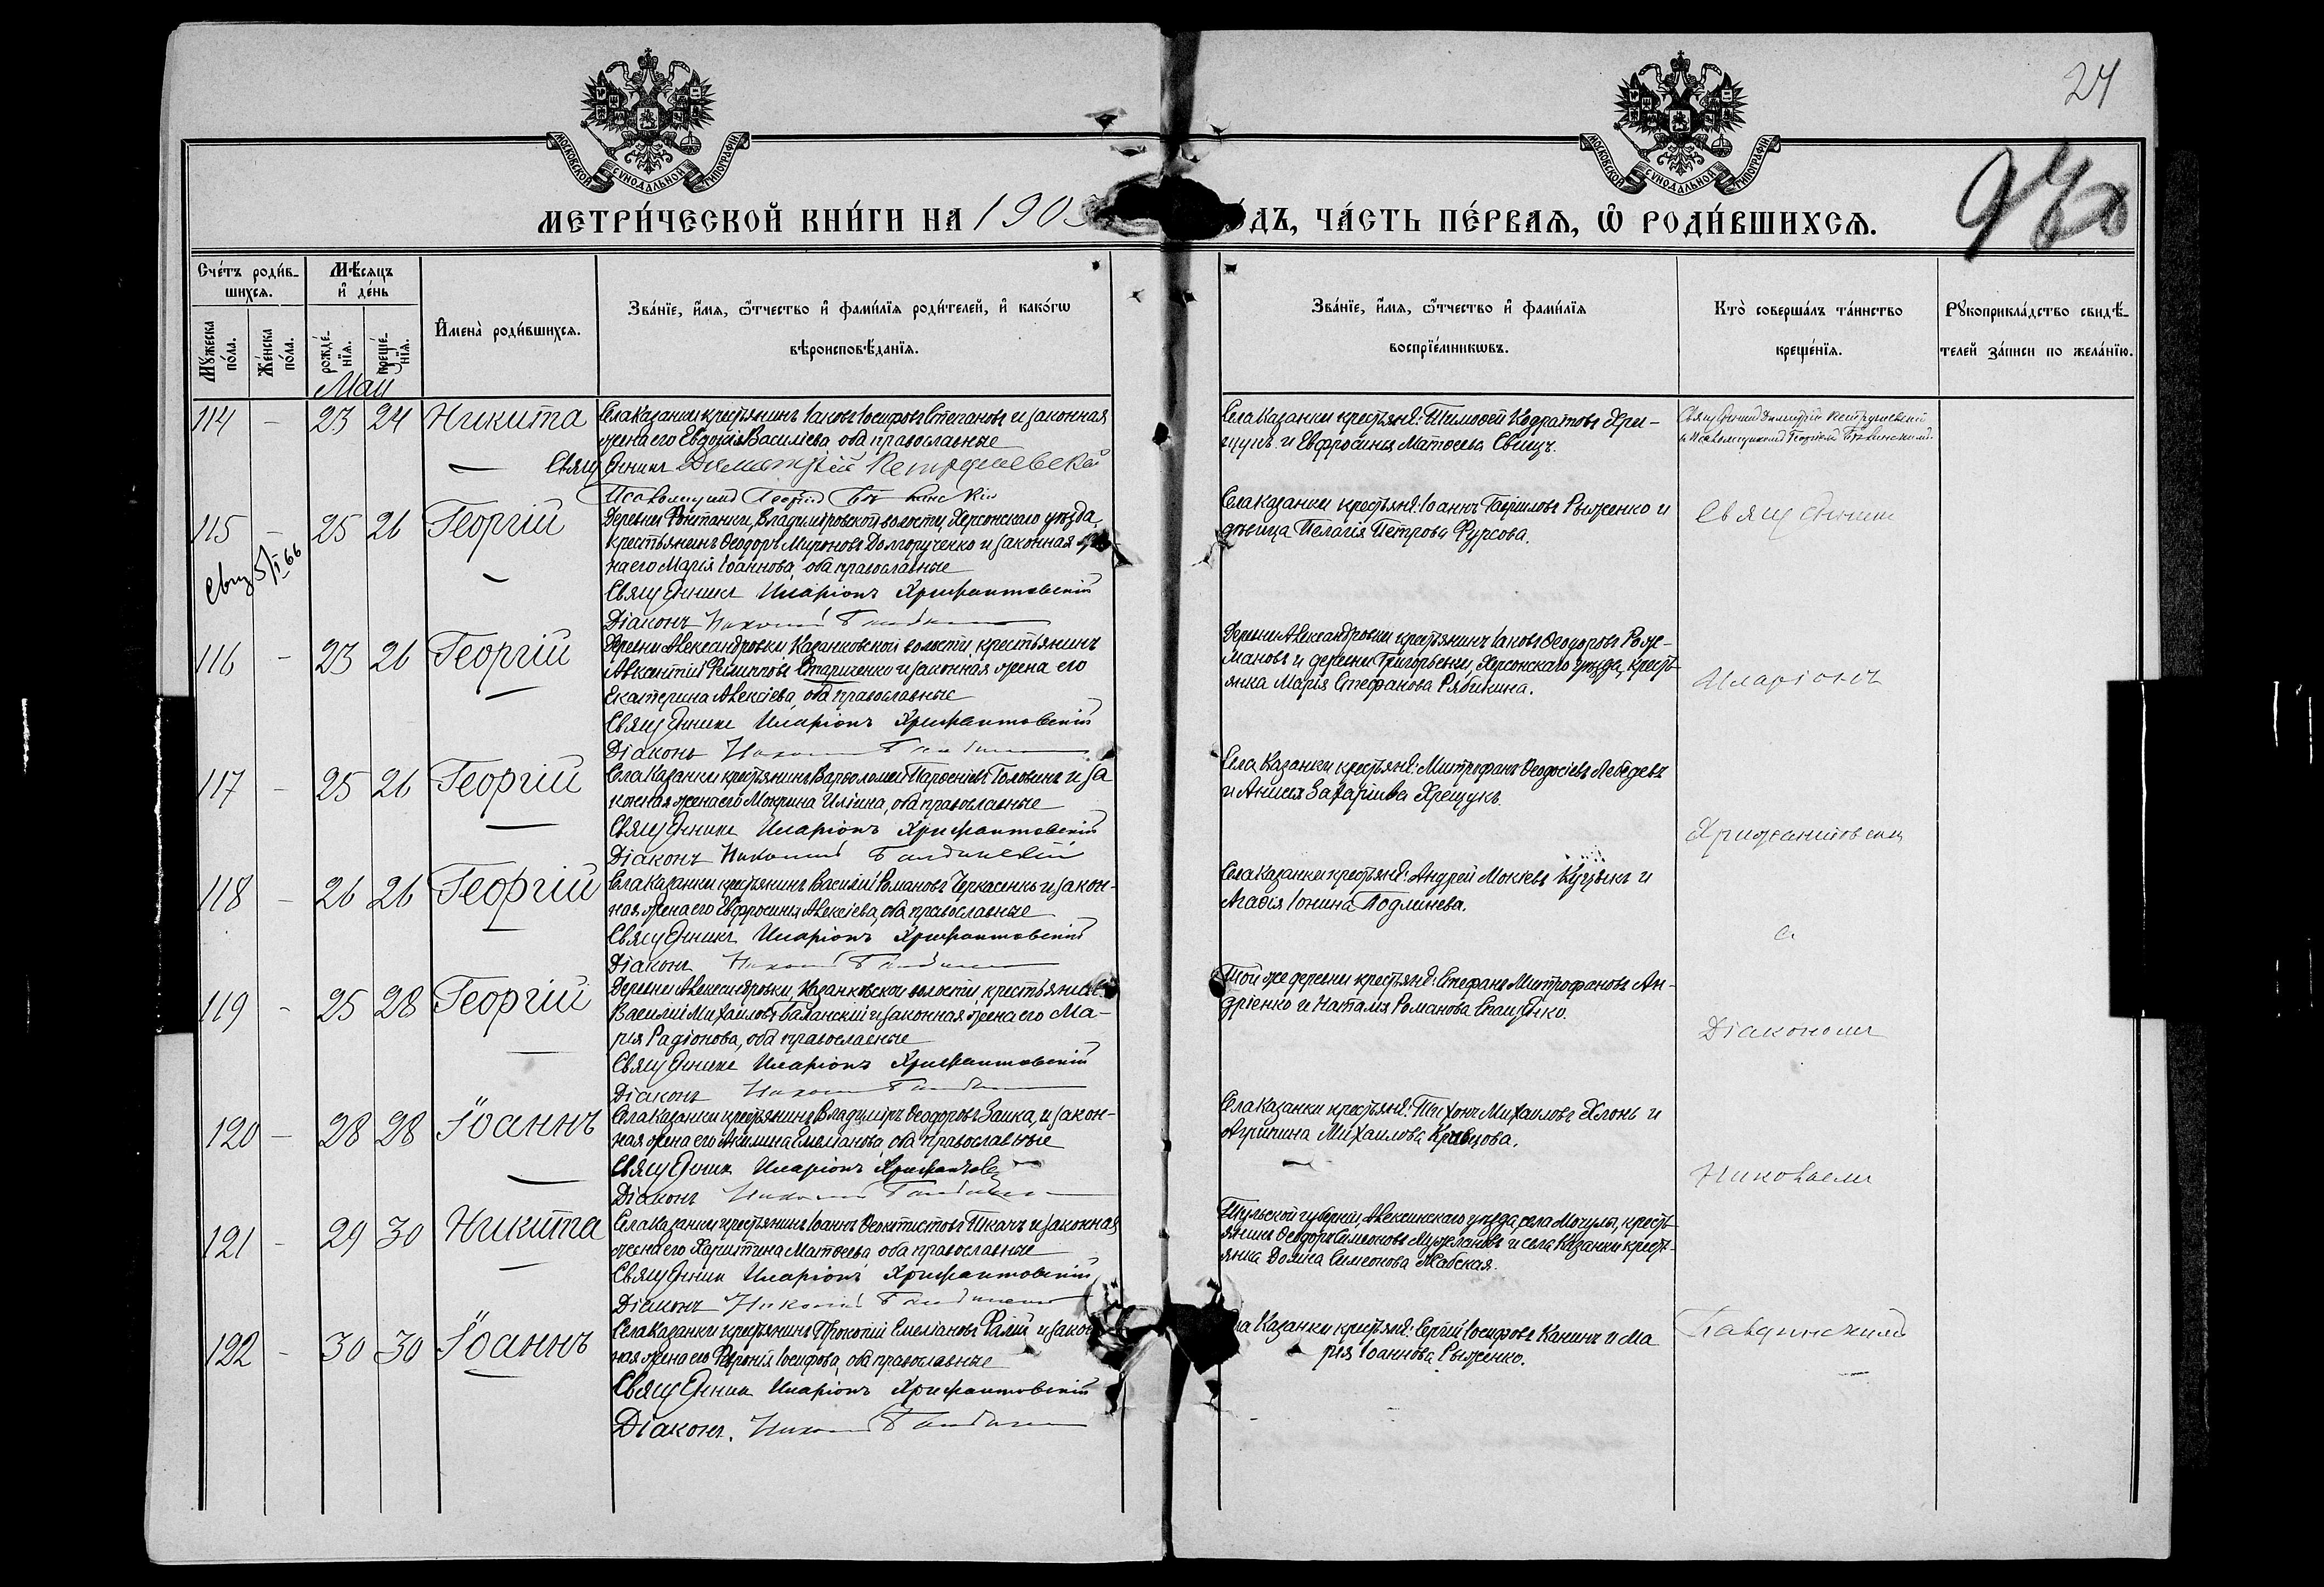 24
МОСКОВСКОЙ СУНОДАЛЬНОЙ ТИПОГРАФІИ
МОСКОВСКОЙ СУНОДАЛЬНОЙ ТИПОГРАФІИ
МЕТРИ́ЧЕСКОЙ КНИ́ГИ НА 190
О́ДЪ, ЧА́СТЬ ПЕ́РВАѦ, Ѡ҆ РОДИ́ВШИХСѦ.
Сче́тъ роди́в-
шихсѧ.
Мѣ́сѧцъ
и҆ де́нь
И҆мена̀ роди́вшихсѧ.
Зва́нїе, и҆́мѧ, ѻ҆́тчество и҆ фами́лїѧ роди́телей, и҆ како́гѡ
вѣроисповѣ́данїѧ.
Зва́нїе, и҆́мѧ, ѻ҆́тчество и҆ фами́лїѧ
воспрїе́мникѡвъ.
Кто̀ соверша́лъ та́инство
креще́нїѧ.
Рꙋкоприкла́дство свидѣ́-
телей за́писи по жела́нїю.
Мꙋ́жеска
по́ла.
Же́нска
по́ла.
рожде́-
нїѧ.
креще́-
нїѧ.
Маи
114 - 23 24 Никита
Села Казанки крестьянинъ Іаковъ Іосифовъ Степановъ и законная
жена его Евдокія Василіева оба православные
Священникъ Димитрій Петрушевскій
Псаломщикъ Георгій
Села Казанки крестьяне: Тимоѳей Кодратовъ Хри-
щукъ и Евфросинія Матѳеева Свищъ.
Священникъ Димитрій Петрушевскій
и Псаломщикомъ Георгіемъ
115 - 25 26 Георгій
Деревни Фонтанки, Владиміровской волости, Херсонскаго уѣзда,
крестьянинъ Ѳеодоръ Мироновъ Долгорученко и законная же-
на его Марія Іоаннова, оба православные
Священникъ Иларіонъ Хрисантовскій
Діаконъ Николай
Села Казанки крестьяне: Іоаннъ Гавріиловъ Рыженко и
дѣвица Пелагія Петрова Фурсова.
Священникъ
116 - 23 26 Георгій
Деревни Александровки, Казанковской волости, крестьянинъ
Авксентій Филипповъ Стариченко и законная жена его
Екатерина Алексіева, оба православные
Священникъ Иларіонъ Хрисантовскій
Діаконъ Николай
Деревни Александровки крестьянинъ Іаковъ Ѳеодоровъ Рож-
мановъ и деревни Григорьевки, Херсонскаго уѣзда, кресть-
янка Марія Стефанова Рябикина.
Иларіонъ
117 - 25 26 Георгій
Села Казанки крестьянинъ Варѳоломей Парѳеніевъ Головинъ и за
конная жена его Мокрина Иліина, оба православные
Священникъ Иларіонъ Хрисантовскій
Діаконъ Николай
Села Казанки крестьяне: Митрофанъ Ѳеодосіевъ Лебедевъ
и Анисія Захаріива Хрещукъ.
Хрисантовскій
118 - 26 26 Георгій
Села Казанки крестьянинъ Василій Романовъ Черкасенко и закон-
ная жена его Евфросинія Алексіева, оба православные
Священникъ Иларіонъ Хрисантовскій
Діаконъ Николай
Села Казанки крестьяне: Андрей Мокіевъ Куцыкъ и
Агаѳія Іонина Подлинева.
съ
119 - 25 28 Георгій
Деревни Александровки, Казанковской волости, крестьянинъ
Василій Михаиловъ Баланскій и законная жена его Ма-
рія Радіонова, оба православные
Священникъ Иларіонъ Хрисантовскій
Діаконъ Николай
Той же деревни крестьяне: Стефанъ Митрофановъ Ан-
дріенко и Наталія Романова
Діакономъ
120 - 28 28 Іоаннъ
Села Казанки крестьянинъ Владиміръ Ѳеодоровъ Заика, и закон-
ная жена его Акилина Емеліанова, оба православные
Священникъ Иларіонъ
Діаконъ Николай
Села Казанки крестьяне: Тихонъ Михаиловъ Хлонь и
Агрипина Михаилова Кравцова.
Николаемъ
121 - 29 30 Никита
Села Казанки крестьянинъ Іоаннъ Ѳеоктистовъ Ткачъ и законная
жена его Харитина Матѳеева оба православные
Священникъ Иларіонъ Хрисантовскій
Діаконъ Николай
Тульской губерніи, Алексинскаго уѣзда, села Мочулы, кресть-
янинъ Ѳеодоръ Симеоновъ и села Казанки кресть-
янка Домна Симеонова Жабская.
122 - 30 30 Іоаннъ
Села Казанки крестьянинъ Прокопій Емеліановъ Фалій и закон
ная жена его Февронія Іосифова, оба православные
Священникъ Иларіонъ Хрисантовскій
Діаконъ. Николай
ла Казанки крестьяне: Сергій Іосифовъ Канинъ и Ма
рія Іоаннова Рыженко.